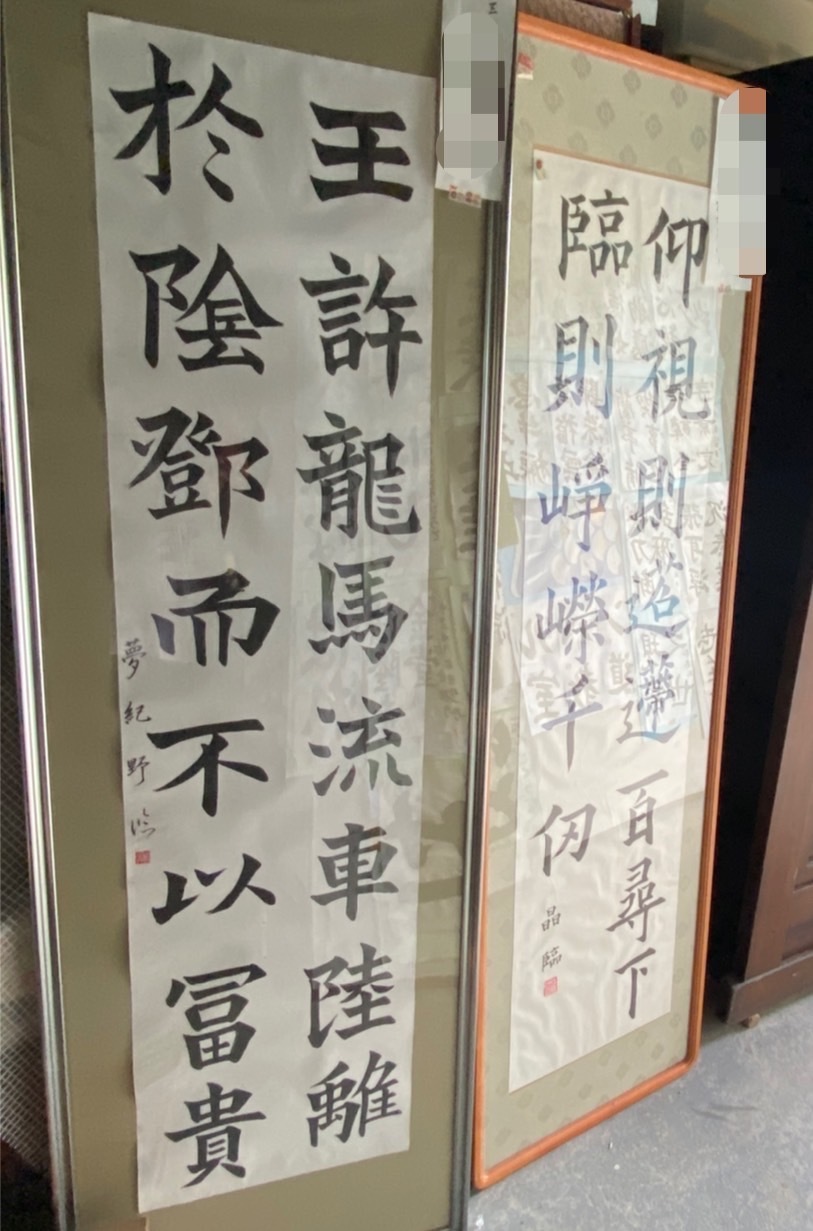 仰視則迢遰百尋下
臨則崢嶸千仞
晶臨
王許龍馬流車陸離
於陰鄧而不以冨貴
夢紀野臨